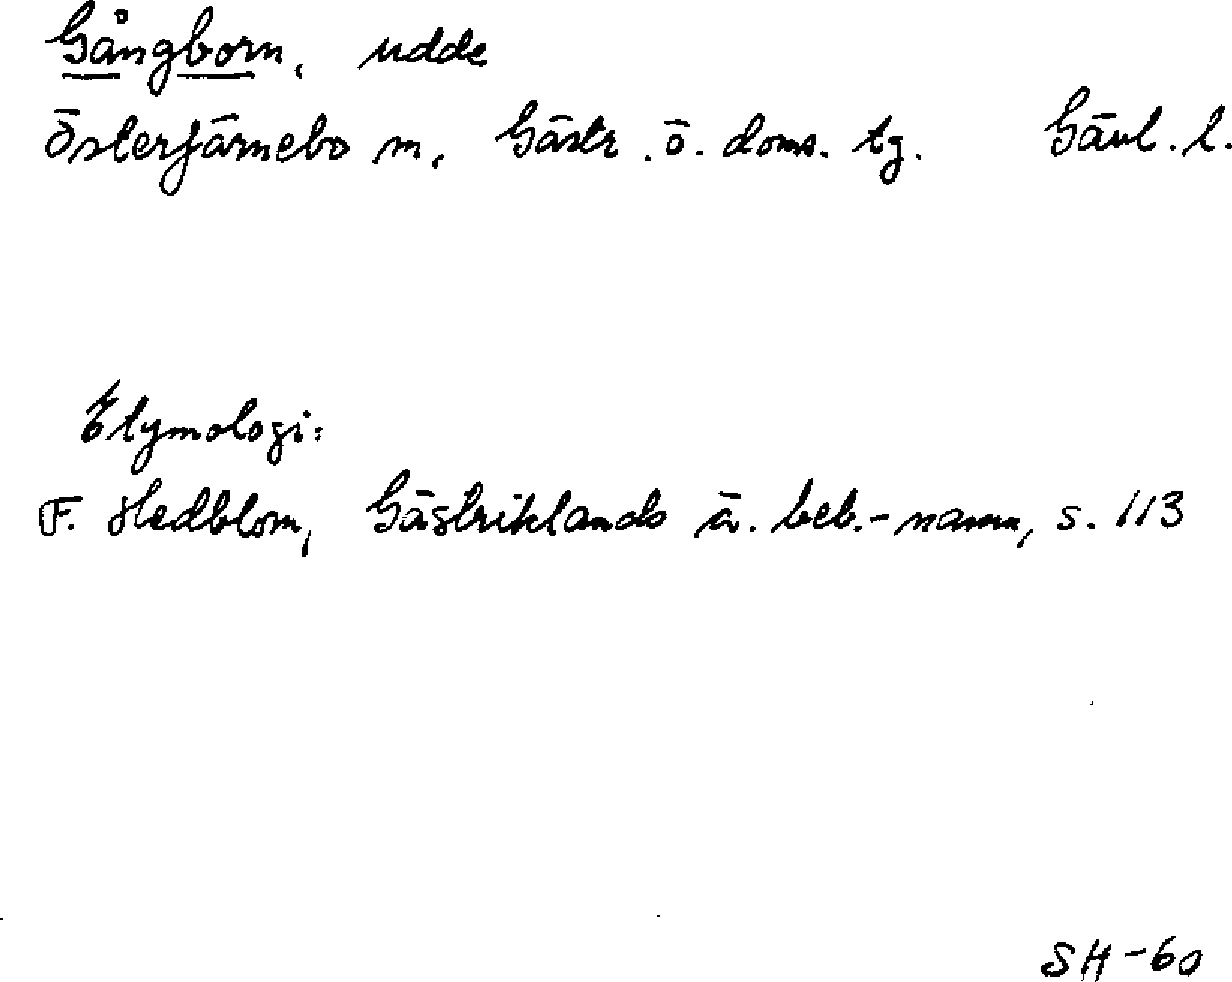 Gångborn, udde
Österfärnebo sn, Gästr. ö. doms. tg. Gävl. l.
Etymologi:
F. Hedblom, Gästriklands ä. beb.-namn, s. 113
SH-60